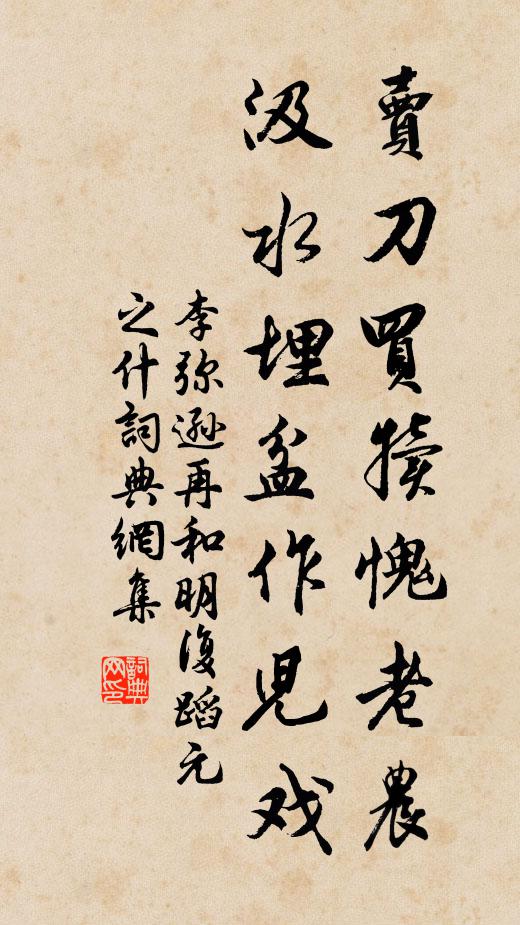 賣刀買犢愧老農
汲水埋盆作児戏
李弥遜再和明復蹈元
之什詞典網集
詞典网印